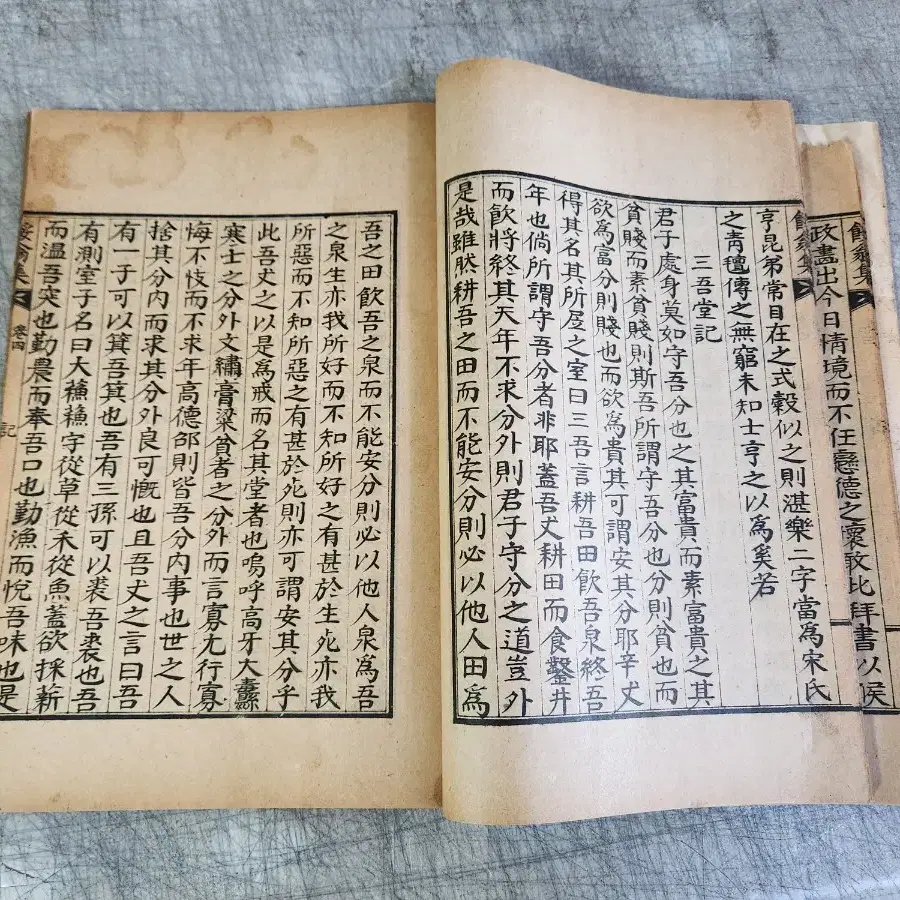 翁集
政畫出今日情境而不任戀德之懷敢此拜書以俟
翁集
亨昆弟常目在之式穀似之則湛樂二字當爲宋氏
之靑氊傳之無窮未知士亨之以爲奚若
三吾堂記
君子處身莫如守吾分也之其富貴而素富貴之其
貧賤而素貧賤則斯吾所謂守吾分也分則貧也而
欲爲富分則賤也而欲爲貴其可謂安其分耶辛丈
得其名其所居之室曰三吾言耕吾田飮吾泉終吾
年也倘所謂守吾分者非耶蓋吾丈耕田而食鑿井
而飮將終其天年不求分外則君子守分之道豈外
是哉雖然耕吾之田而不能安分則必以他人田爲
吾之田飮吾之泉而不能安分則必以他人泉爲吾
之泉生亦我所好而不知所好之有甚於生死亦我
所惡而不知所惡之有甚於死則亦可謂安其分乎
此吾丈之以是爲戒而名其堂者也嗚呼高牙大纛
寒士之分外文繡膏粱貧者之分外而言寡尤行寡
悔不忮而不求年高德邵則皆吾分內事也世之人
捨其分內而求其分外良可慨也且吾丈之言曰吾
有一子可以箕吾箕也吾有三孫可以裘吾裘也吾
有測室子名曰大蘓蘓字從草從禾從魚蓋欲採薪
而溫吾突也勤農而奉吾口也勤漁而悅吾味也是
翁集 卷四 記